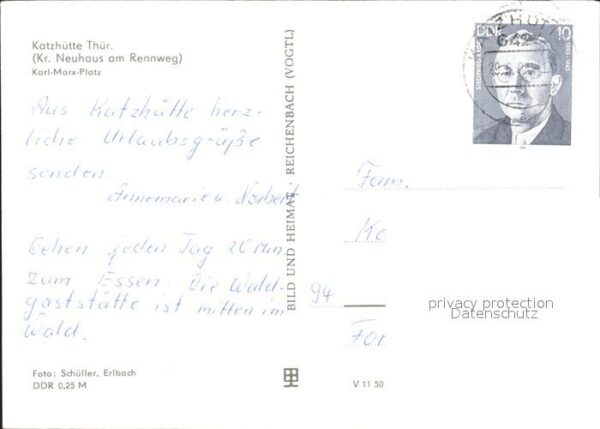 Katzhütte Thür.
(Kr. Neuhaus am Rennweg)
Karl-Marx-Platz
Aus Katzhütte herz-
liche Urlaubsgrüße
senden
Annemarie u. Norbert
Gehen jeden Tag 20 Min.
zum Essen. Die Wald-
gaststätte ist mitten im
Wald.
Foto: Schüller, Erlbach
DDR 0,25 M
BILD UND HEIMAT REICHENBACH (VOGTL)
V 11 50
DDR 10
KATZHÜTTE
Fam.
94
privacy protection
Datenschutz